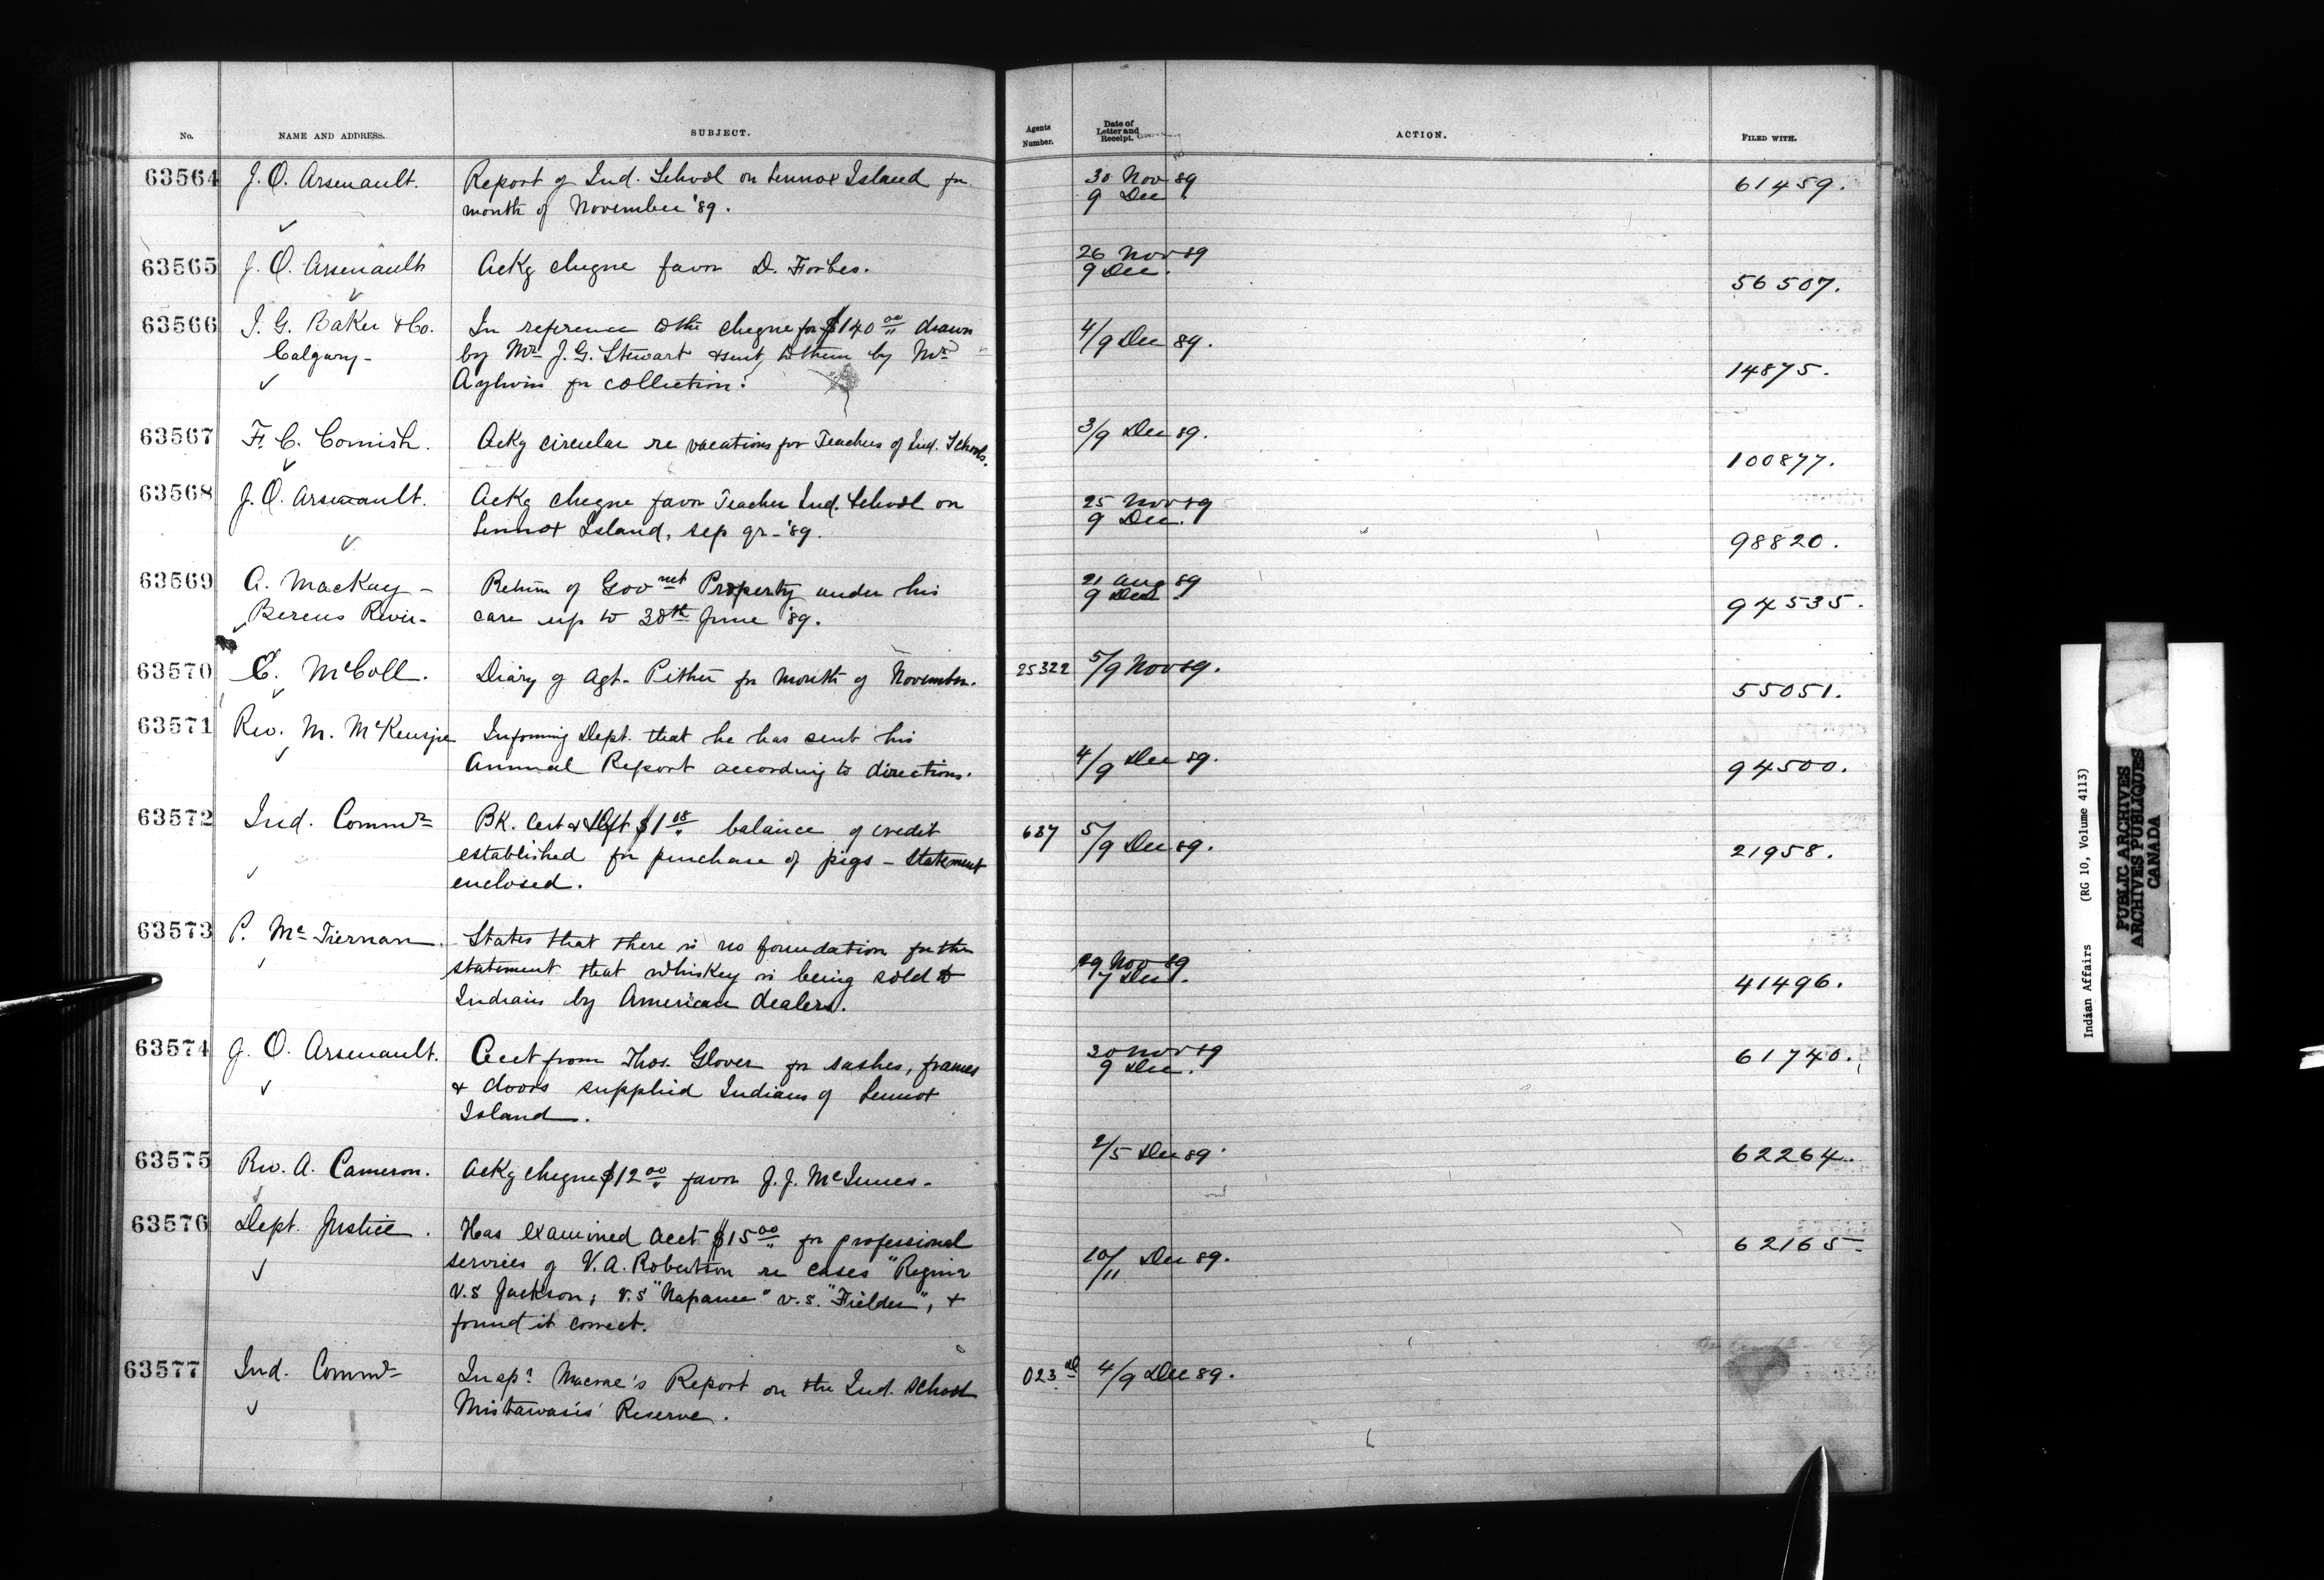 No. NAME AND ADDRESS. SUBJECT. Agents Number. Date of Letter and Receipt. ACTION. FILED WITH.
63564 J. O. Arsenault. Report of Ind. School on Lennox Island for 30 Nov 89 61459.
month of November '89. 9 Dec
63565 J. O. Arsenault Ackg cheque favor D. Forbes. 26 Nov 89
9 Dec. 56507.
63566 I. G. Baker & Co. In reference to the cheque for $140 00 drawn 4/9 Dec 89.
Calgary- by Mr. J. G. Stewart & sent to them by Mr 14875.
Aylwin for collection.
63567 F. C. Cornish. Ackg circular re vacations for Teachers of Ind. Schools. 3/9 Dec 89.
100877.
63568 J. O. Arsenault. Ackg cheque favor Teacher Ind. School on 25 Nov 89
Lennox Island, sep qr-'89. 9 Dec. 98820.
63569 A. MacKay - Return of Govnt Property under his 21 Aug 89
Berens River- care up to 30th June '89. 9 Dec 94535.
63570 E. McColl. Diary of Agt. Pither for month of November. 25322 5/9 Nov 89.
55051.
63571 Rev. M. McKenzie Informing Dept. that he has sent his
Annual Report according to directions. 4/9 Dec 89. 94500.
63572 Ind. Commr BK. Cert & Dft $1 08 balance of credit 687 5/9 Dec 89.
established for purchase of pigs - statement 21958.
enclosed.
63573 P. McTiernan. States that there is no foundation for the
statement that whiskey is being sold to 29 Nov 89
Indians by American dealers. 7 Dec. 41496.
63574 J. O. Arsenault. Acct from Thos. Glover for sashes, frames 30 Nov 89 61740.
& doors supplied Indians of Lennox 9 Dec.
Island.
63575 Rev. A. Cameron. Ackg cheque $12 00 favor J. J. McInnes- 2/5 Dec 89. 62264.
63576 Dept. Justice. Has examined acct $15 00 for professional 62165-
services of V. A. Robertson re cases "Regina 10/11 Dec 89.
v.s Jackson; v.s "Napanee" v.s. "Fielder", &
found it correct.
63577 Ind. Commr Inspr Macrae's Report on the Ind. School 023 4/9 Dec 89.
Mistawasis' Reserve.
Indian Affairs (RG 10, Volume 4113)
PUBLIC ARCHIVES
ARCHIVES PUBLIQUES
CANADA